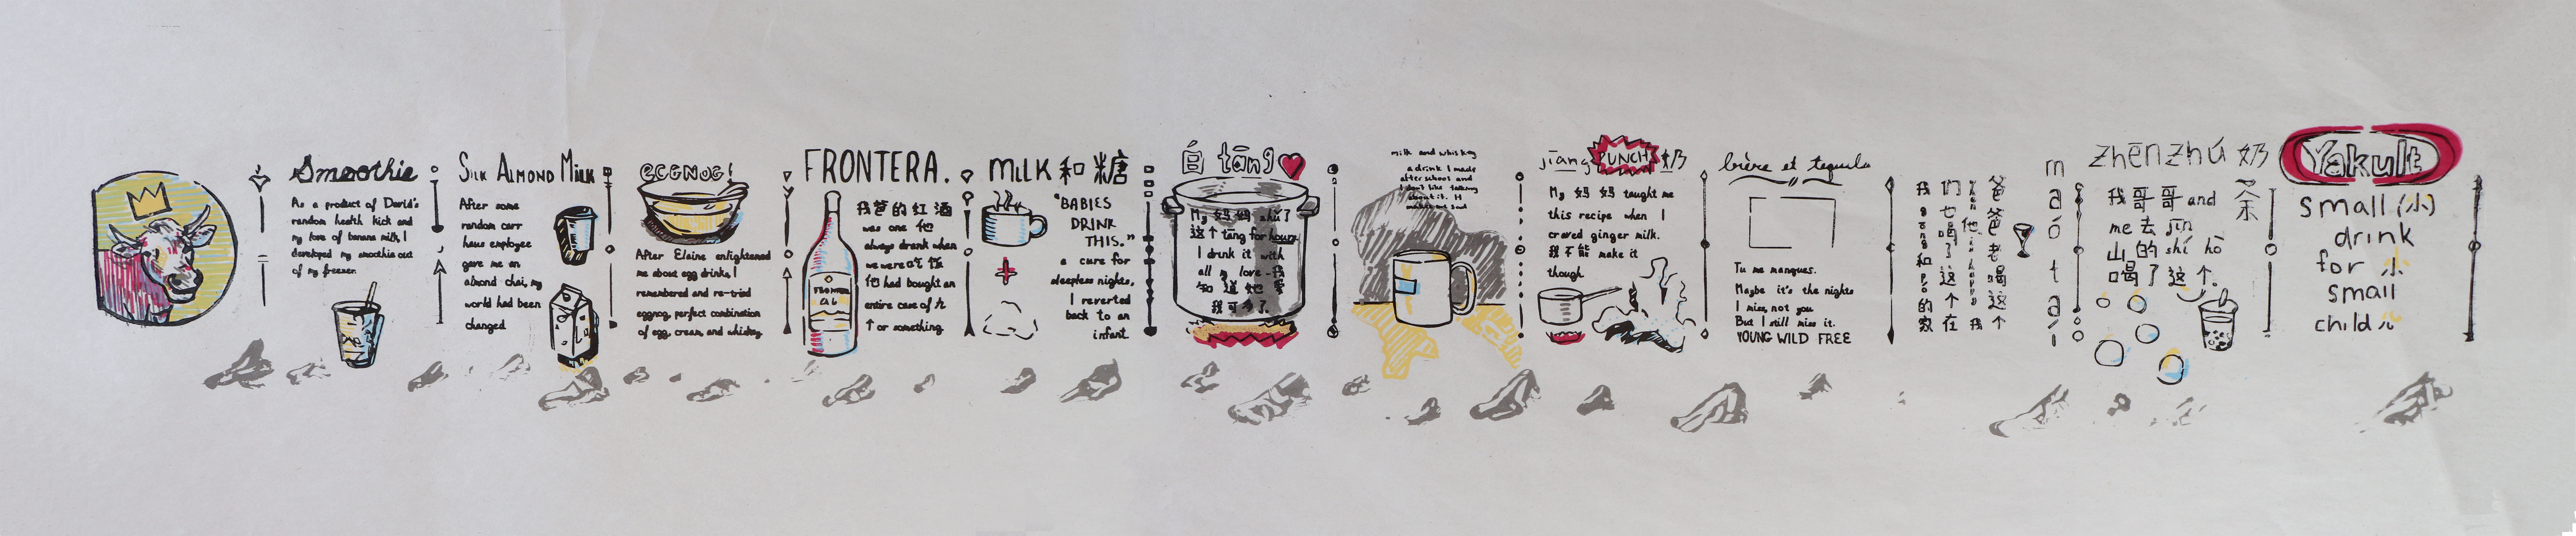 Smoothie
As a product of David's
random health kick and
my love of banana milk, I
developed my smoothie out
of my freezer.
SILK ALMOND MILK
After some
random carr
haus employee
gave me an
almond chai, my
world had been
changed
eggnog!
After Elaine enlightened
me about egg drinks, I
remembered and re-tried
eggnog, perfect combination
of egg, cream, and whiskey.
FRONTERA.
我爸的红酒
was one 他
always drank when
we were吃饭
他 had bought an
entire case of
个 or something
FRONTERA
MILK 和 糖
"BABIES
DRINK
THIS."
a cure for
sleepless nights,
I reverted
back to an
infant.
白 tāng
My 妈妈 zhǔ了
这个 tāng for hours
I drink it with
all my love-我
知道她爱
我可多了.
milk and whiskey
a drink I made
after school and
I don't like talking
about it. It
makes me sad
jiāng PUNCH 奶
My 妈妈 taught me
this recipe when I
craved ginger milk.
我不能 make it
though
bière et tequila
Tu me manques.
Maybe it's the nights
I miss, not you
But I still miss it.
YOUNG WILD FREE
我 和 的家
们也喝了这个在
他 我
爸爸老喝这个
máo tái
zhēn zhū 奶茶
我哥哥 and
me 去 jīn
山的 shí hò
喝了这个.
Yakult
small (小)
drink
for 小
small
child 儿